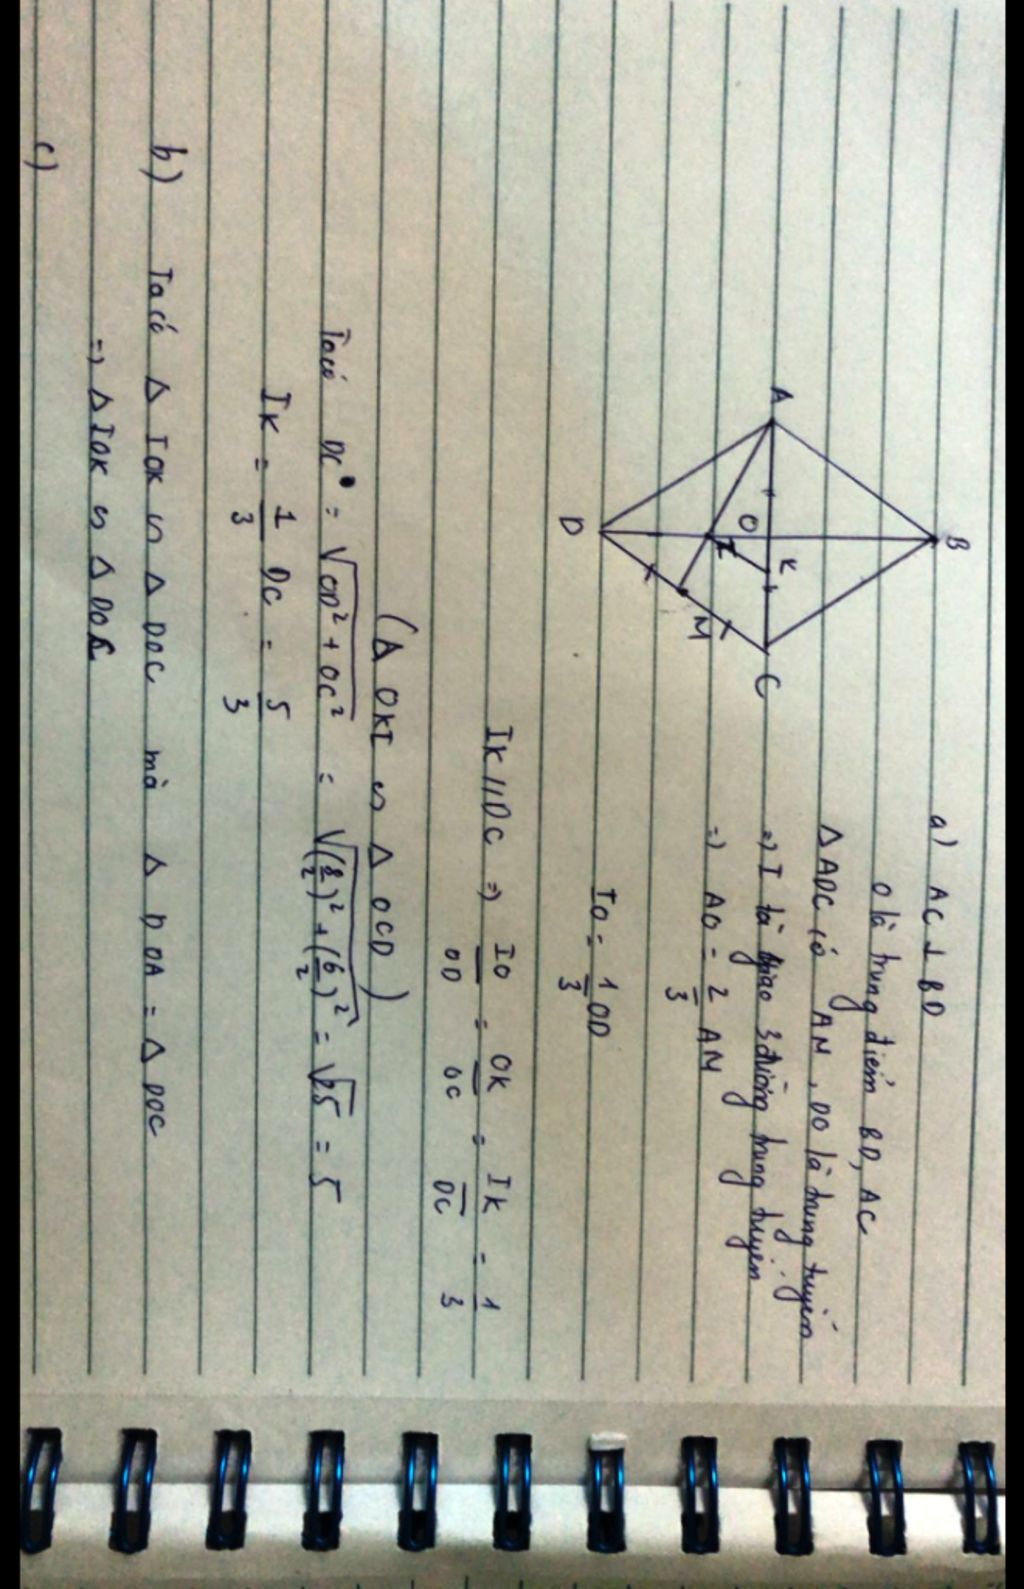 a) AC ⊥ BD
O là trung điểm BD, AC
Δ ADC có AM, DO là trung tuyến
=> I là giao 3 đường trung tuyến
=> AO = 2/3 AM
IO = 1/3 OD
IK // DC => IO/OD = OK/OC = IK/DC = 1/3
(Δ OKI ∽ Δ OCD)
Ta có DC = √(OD² + OC²) = √((8/2)² + (6/2)²) = √25 = 5
IK = 1/3 DC = 5/3
b) Ta có Δ IOK ∽ Δ DOC mà Δ DOA = Δ DOC
=> Δ IOK ∽ Δ DOA
c)
A
B
C
D
O
K
I
M